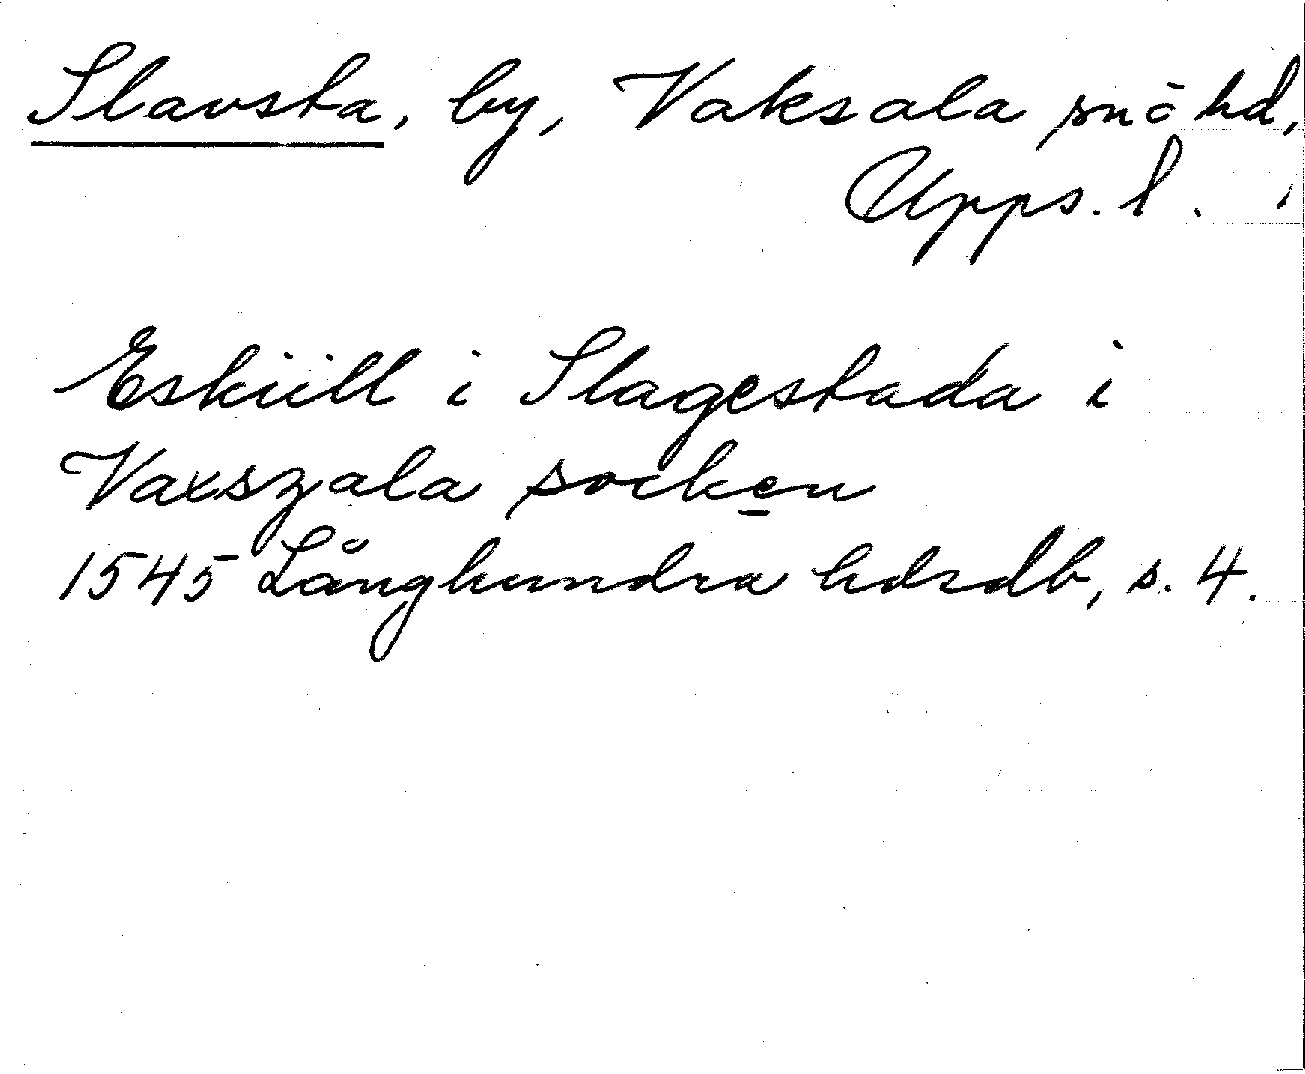 Slavsta, by, Vaksala sn o hd,
Upps. l.
Eskiill i Slagestada i
Vaxszala socken
1545 Långhundra hdrdb, s. 4.